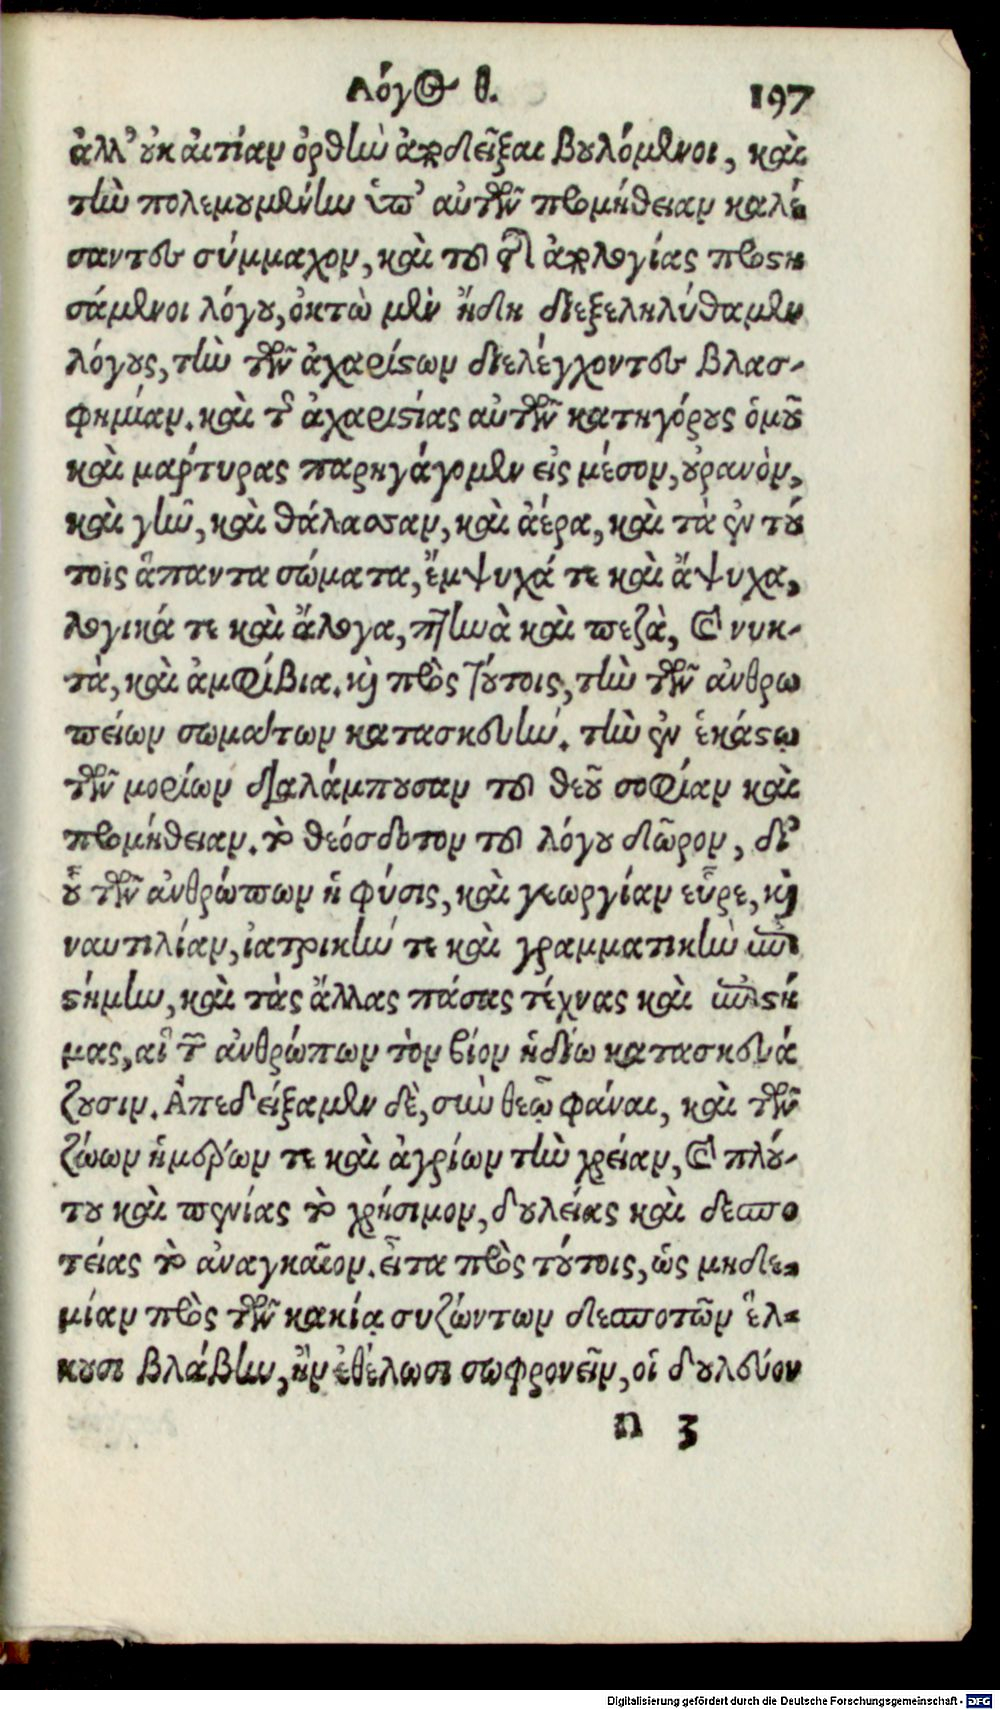 Λόγος θ. 197
ἀλλ' οὐκ αἰτίαν ὀρθὴν ἀποδεῖξαι βουλόμενοι, καὶ
τὴν πολεμουμένην ὑπ' αὐτῶν προμήθειαν καλέ
σαντες σύμμαχον, καὶ τοῦ τῆς ἀπολογίας προστη
σάμενοι λόγου, ὀκτὼ μὲν ἤδη διεξεληλύθαμεν
λόγους, τὴν τῶν ἀχαρίστων διελέγχοντες βλασ-
φημίαν. καὶ τῆς ἀχαριστίας αὐτῶν κατηγόρους ὁμοῦ
καὶ μάρτυρας παρηγάγομεν εἰς μέσον, οὐρανὸν,
καὶ γῆν, καὶ θάλασσαν, καὶ ἀέρα, καὶ τὰ ἐν τού
τοις ἅπαντα σώματα, ἔμψυχά τε καὶ ἄψυχα,
λογικά τε καὶ ἄλογα, πτηνὰ καὶ πεζὰ, καὶ νυκ-
τὰ, καὶ ἀμφίβια. καὶ πρὸς τούτοις, τὴν τῶν ἀνθρω
πείων σωμάτων κατασκευὴν. τὴν ἐν ἑκάστῳ
τῶν μορίων διαλάμπουσαν τοῦ θεοῦ σοφίαν καὶ
προμήθειαν. τὸ θεόσδοτον τοῦ λόγου δῶρον, δι'
οὗ τῶν ἀνθρώπων ἡ φύσις, καὶ γεωργίαν εὗρε, καὶ
ναυτιλίαν, ἰατρικὴν τε καὶ γραμματικὴν ἐπι
στήμην, καὶ τὰς ἄλλας πάσας τέχνας καὶ ἐπιστή
μας, αἳ τῶν ἀνθρώπων τὸν βίον ἡδίω κατασκευά
ζουσιν. Ἀπεδείξαμεν δὲ, σὺν θεῷ φάναι, καὶ τῶν
ζώων ἡμέρων τε καὶ ἀγρίων τὴν χρείαν, καὶ πλού-
του καὶ πενίας τὸ χρήσιμον, δουλείας καὶ δεσπο
τείας τὸ ἀναγκαῖον. εἶτα πρὸς τούτοις, ὡς μηδε-
μίαν πρὸς τῶν κακίᾳ συζώντων δεσποτῶν ἕλ-
κουσι βλάβην, ἢν ἐθέλωσι σωφρονεῖν, οἱ δουλεύον
n 3
Digitalisierung gefördert durch die Deutsche Forschungsgemeinschaft - DFG